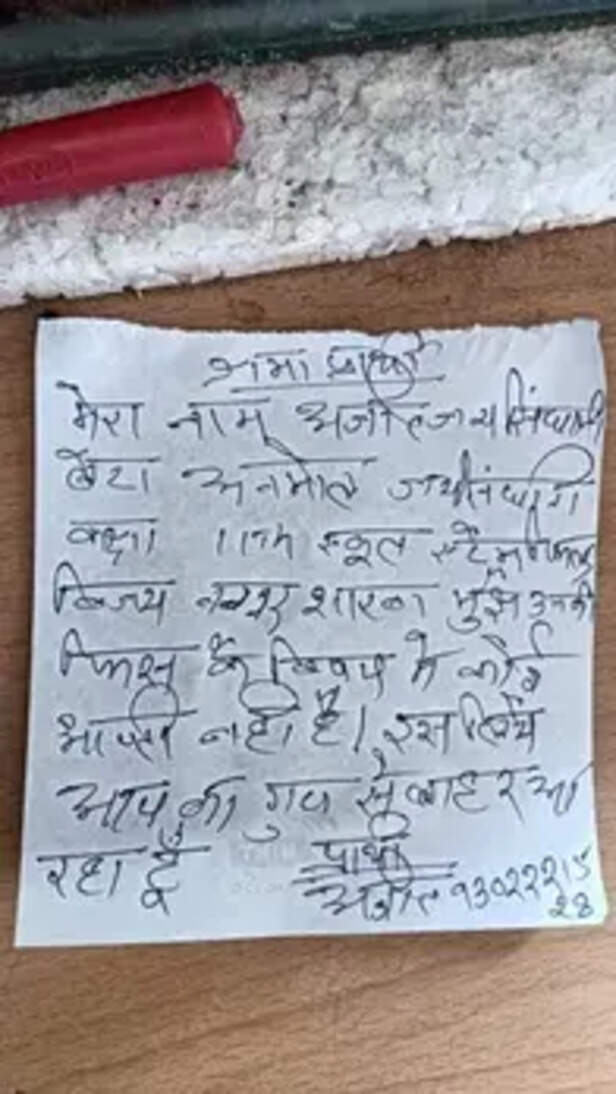 क्षमा प्रार्थी
मेरा नाम अजीत जयसिंघानी
बेटा अनमोल जयसिंघानी
कक्षा 11th स्कूल
विजय नगर शाखा मुझे उनकी
फिस के विषय मे कोई
आपत्ती नही है। इस लिये
आप का ग्रुप से बाहर आ
रहा हूँ प्रार्थी
अजीत 93022215
28